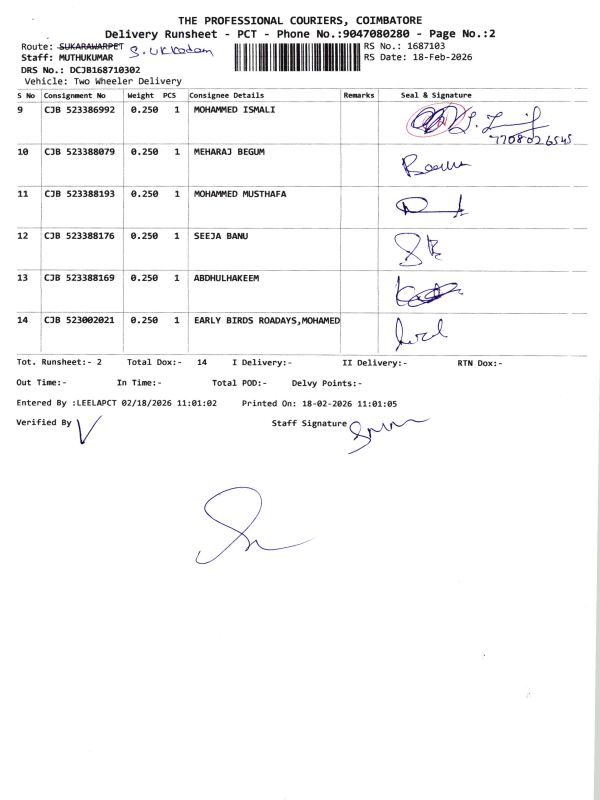 THE PROFESSIONAL COURIERS, COIMBATORE
Delivery Runsheet - PCT - Phone No.:9047080280 - Page No.:2
Route: SUKARAWARPET S.Ukkadam RS No.: 1687103
Staff: MUTHUKUMAR RS Date: 18-Feb-2026
DRS No.: DCJB168710302
Vehicle: Two Wheeler Delivery
S No Consignment No Weight PCS Consignee Details Remarks Seal & Signature
9 CJB 523386992 0.250 1 MOHAMMED ISMALI
7708026545
10 CJB 523388079 0.250 1 MEHARAJ BEGUM
11 CJB 523388193 0.250 1 MOHAMMED MUSTHAFA
12 CJB 523388176 0.250 1 SEEJA BANU
13 CJB 523388169 0.250 1 ABDHULHAKEEM
14 CJB 523002021 0.250 1 EARLY BIRDS ROADAYS,MOHAMED
Tot. Runsheet:- 2 Total Dox:- 14 I Delivery:- II Delivery:- RTN Dox:-
Out Time:- In Time:- Total POD:- Delvy Points:-
Entered By :LEELAPCT 02/18/2026 11:01:02 Printed On: 18-02-2026 11:01:05
Verified By Staff Signature